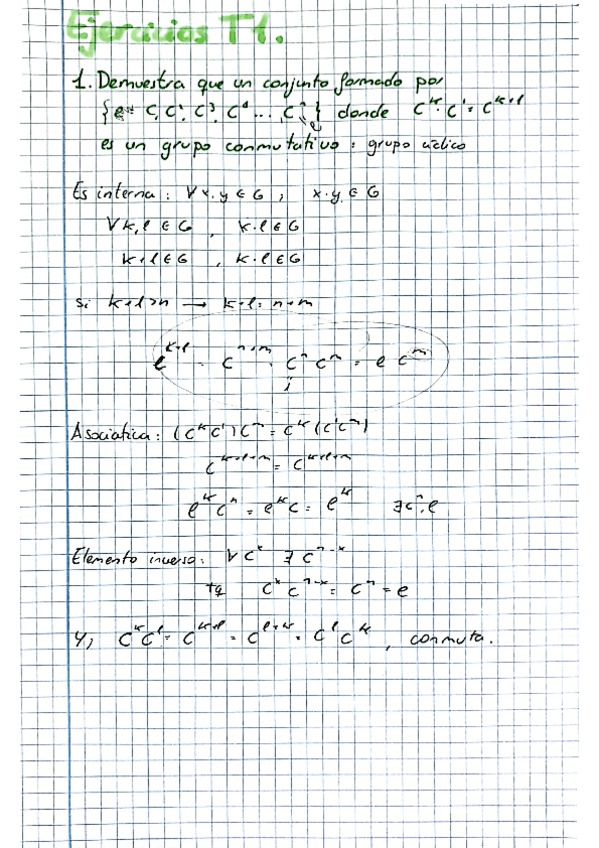 Ejercicios T1.
1. Demuestra que un conjunto formado por
{e = c, c¹, c³, c⁴ ... cⁿ} donde cᵏ·cˡ = cᵏ⁺ˡ
es un grupo conmutativo = grupo cíclico
Es interna: ∀x,y ∈ G, x·y ∈ G
∀k,l ∈ G, k·l ∈ G
k+l ∈ G, k·l ∈ G
Si k+l>n → k+l = n+m
eᵏ⁺ˡ = cⁿ⁺ᵐ = cⁿ cᵐ = e cᵐ
Asociatica: (cᵏcˡ)cᵐ = cᵏ(cˡcᵐ)
cᵏ⁺ˡ⁺ᵐ = cᵏ⁺ˡ⁺ᵐ
eᵏcⁿ = eᵏe = eᵏ ∃cⁿ=e
Elemento inverso: ∀cˣ ∃ cⁿ⁻ˣ
tq cˣ cⁿ⁻ˣ = cⁿ = e
Y, cᵏcˡ = cᵏ⁺ˡ = cˡ⁺ᵏ = cˡcᵏ, conmuta.